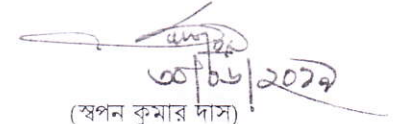 ৩০/০৬/২০১৯
(স্বপন কুমার দাস)